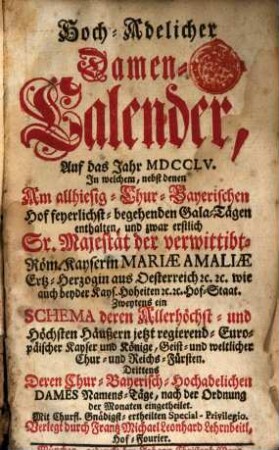 Hoch-Adelicher
Damen-
Calender,
Auf das Jahr MDCCLV.
In welchem, nebst denen
Am allhiesig-Chur-Bayerischen
Hof feyerlichst-begehenden Gala-Tägen
enthalten, und zwar erstlich
Sr. Majestät der verwittibt-
Röm. Kayserin MARIÆ AMALIÆ
Ertz-Herzogin aus Oesterreich ꝛc. ꝛc. wie
auch beyder Kays. Hoheiten ꝛc. ꝛc. Hof-Staat.
Zweytens ein
SCHEMA deren Allerhöchst- und
Höchsten Häußern jetzt regierend-Euro-
päischer Kayser und Könige, Geist- und weltlicher
Chur- und Reichs-Fürsten.
Drittens
Deren Chur-Bayerisch-Hochadelichen
DAMES Namens-Täge, nach der Ordnung
der Monaten eingetheilet.
Mit Churfl. Gnädigst-ertheilten Special-Privilegio.
Verlegt durch Frantz Michael Leonhard Lehrnbeitl,
Hof-Fourier.